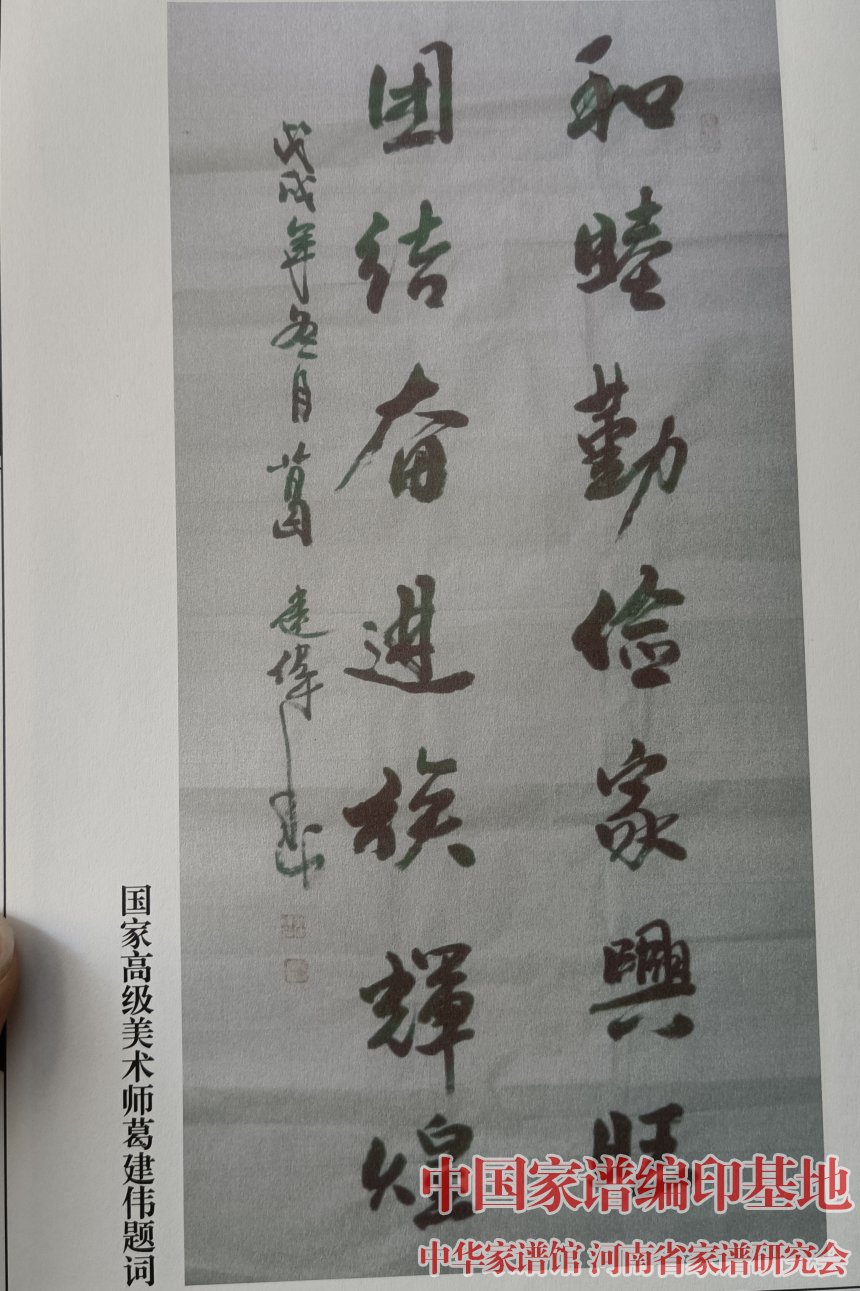 和睦勤俭家興旺
团结奋进族輝煌
戊戌年冬月葛建偉
国家高级美术师葛建伟题词
中国家谱编印基地
中华家谱馆 河南省家谱研究会